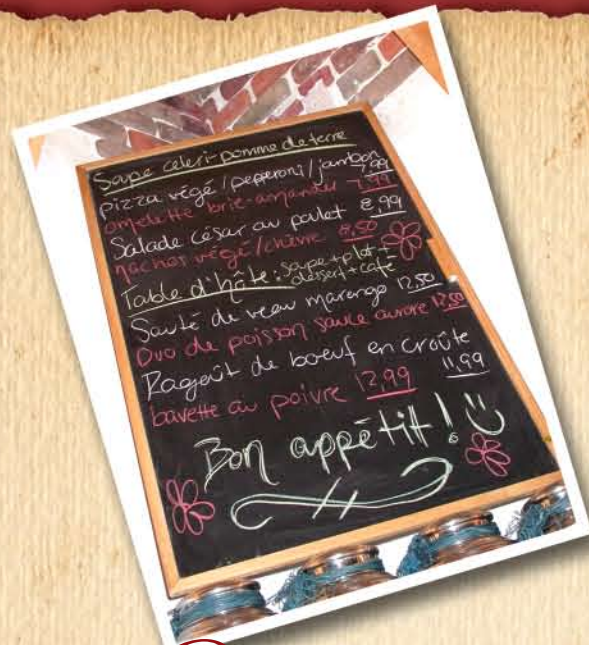 Soupe céleri-pomme de terre
pizza végé/pepperoni/jambon 7,99
omelette brie-amandes 7,99
Salade césar au poulet 8,99
nachos végé/chèvre 8,50
Table d'hôte: soupe+plat+
dessert+café
Sauté de veau marengo 12,50
Duo de poisson sauce aurore 12,50
Ragoût de boeuf en croûte
11,99
bavette au poivre 12,99
Bon appétit!